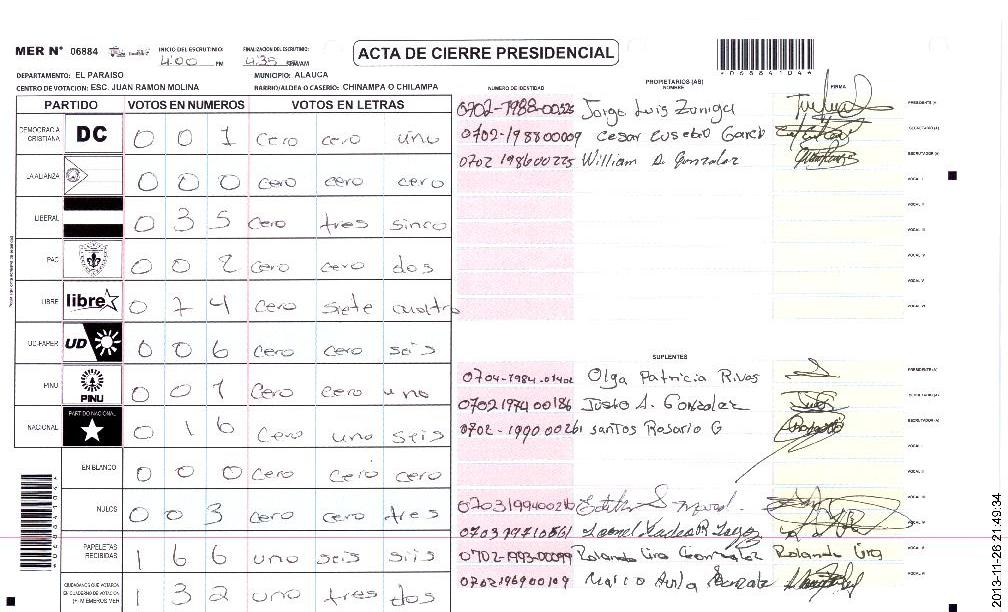 MER N° 06884
INICIO DEL ESCRUTINIO: 4:00 PM
FINALIZACION DEL ESCRUTINIO: 4:35
ACTA DE CIERRE PRESIDENCIAL
*06884104*
DEPARTAMENTO: EL PARAISO
MUNICIPIO: ALAUCA
CENTRO DE VOTACION: ESC. JUAN RAMON MOLINA
BARRIO/ALDEA O CASERIO: CHINAMPA O CHILAMPA
PARTIDO VOTOS EN NUMEROS VOTOS EN LETRAS
DEMOCRACIA CRISTIANA DC 0 0 1 cero cero uno
LA ALIANZA 0 0 0 cero cero cero
LIBERAL 0 3 5 cero tres sinco
PAC 0 0 2 cero cero dos
LIBRE libre 0 7 4 cero siete cuatro
UD-FAPER UD 0 0 6 cero cero seis
PINU PINU 0 0 1 cero cero uno
NACIONAL PARTIDO NACIONAL 0 1 6 cero uno seis
EN BLANCO 0 0 0 cero cero cero
NULOS 0 0 3 cero cero tres
PAPELETAS RECIBIDAS 1 6 6 uno seis seis
CIUDADANOS QUE VOTARON EN CUADERNO DE VOTACION (+) MIEMBROS MER 1 3 2 uno tres dos
PROPIETARIOS (AS)
NUMERO DE IDENTIDAD NOMBRE FIRMA
0702-1988-00525 Jorge Luis Zuniga PRESIDENTE (A)
0702-198800009 Cesar Eusebio Garcia SECRETARIO (A)
0702 198600225 William D. Gonzalez ESCRUTADOR (A)
VOCAL I
VOCAL II
VOCAL III
VOCAL IV
VOCAL V
VOCAL VI
SUPLENTES
0704-1984-01402 Olga Patricia Rivas PRESIDENTE (A)
0702 1974 00186 Justo A. Gonzalez SECRETARIO (A)
0702-1990 00261 Santos Rosario G ESCRUTADOR (A)
VOCAL I
VOCAL II
VOCAL III
VOCAL IV
0702-1993-00099 Rolando Rolando VOCAL V
0702196900109 Marco Avila VOCAL VI
2013-11-26 21:49:34